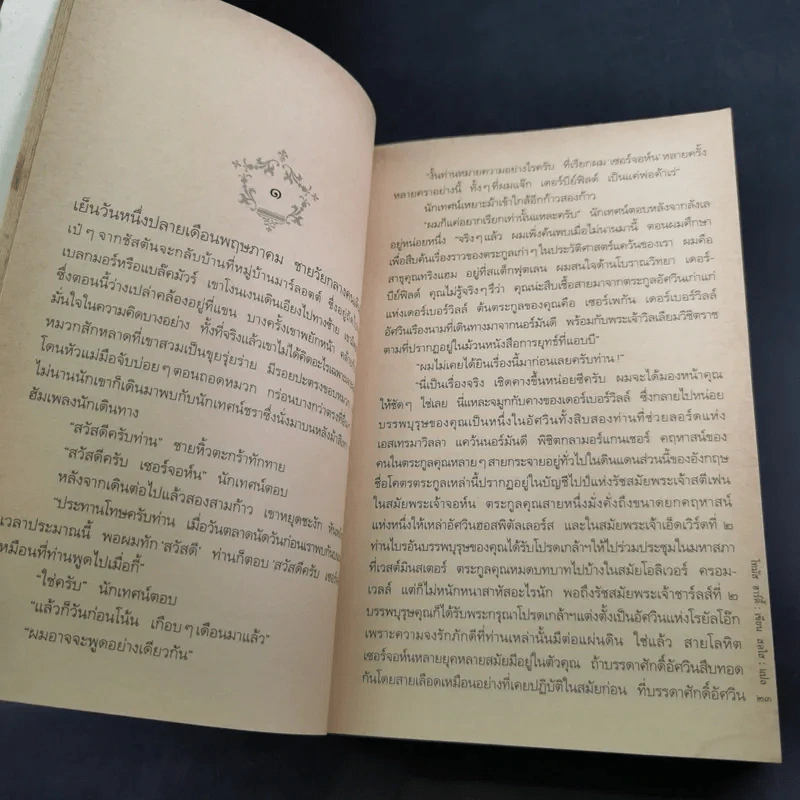 ๑
เย็นวันหนึ่งปลายเดือนพฤษภาคม ชายวัยกลางคน
เป๋ ๆ จากชัสตันจะกลับบ้านที่หมู่บ้านมาร์ลอตต์ ซึ่งอยู่
เบลกมอร์หรือแบล็คมัวร์ เขาโงนเงนเดินเอียงไปทางซ้าย
ซึ่งตอนนี้ว่างเปล่าคล้องอยู่ที่แขน บางครั้งเขาพยักหน้า
มั่นใจในความคิดบางอย่าง ทั้งที่จริงแล้วเขาไม่ได้คิดอะไร
หมวกสักหลาดที่เขาสวมเป็นขุยรุ่ยร่าย มีรอยปะตรงขอบหมวก
โดนหัวแม่มือจับบ่อย ๆ ตอนถอดหมวก กร่อนบางกว่าตรงที่อื่น
ไม่นานนักเขาก็เดินมาพบกับนักเทศน์ชราซึ่งนั่งมาบนหลังม้า
ฮัมเพลงนักเดินทาง
“สวัสดีครับท่าน” ชายหิ้วตะกร้าทักทาย
“สวัสดีครับ เซอร์จอห์น” นักเทศน์ตอบ
หลังจากเดินต่อไปแล้วสองสามก้าว เขาหยุดชะงัก
“ประทานโทษครับท่าน เมื่อวันตลาดนัดวันก่อนเราพบกัน
เวลาประมาณนี้ พอผมทัก ‘สวัสดี’ ท่านก็ตอบ ‘สวัสดีครับ
เหมือนที่ท่านพูดไปเมื่อกี้”
“ใช่ครับ” นักเทศน์ตอบ
“แล้วก็วันก่อนโน้น เกือบ ๆ เดือนมาแล้ว”
“ผมอาจจะพูดอย่างเดียวกัน”
“งั้นท่านหมายความอย่างไรครับ ที่เรียกผม ‘เซอร์จอห์น’ หลายครั้ง
หลายคราอย่างนี้ ทั้ง ๆ ที่ผมแจ๊ก เดอร์บีย์ฟิลด์ เป็นแค่พ่อค้าเร่”
นักเทศน์เหยาะม้าเข้าใกล้อีกก้าวสองก้าว
“ผมก็แค่อยากเรียกเท่านั้นแหละครับ” นักเทศน์ตอบหลังจากลังเล
อยู่หน่อยหนึ่ง “จริง ๆ แล้ว ผมเพิ่งค้นพบเมื่อไม่นานมานี้ ตอนผมศึกษา
เพื่อสืบค้นเรื่องราวของตระกูลเก่า ๆ ในประวัติศาสตร์แคว้นของเรา ผมคือ
สาธุคุณทริงแฮม อยู่ที่สแต็กฟุตเลน ผมสนใจด้านโบราณวิทยา เดอร์-
บีย์ฟิลด์ คุณไม่รู้จริง ๆ รึว่า คุณน่ะสืบเชื้อสายมาจากตระกูลอัศวินเก่าแก่
แห่งเดอร์เบอร์วิลล์ ต้นตระกูลของคุณคือ เซอร์เพกัน เดอร์เบอร์วิลล์
อัศวินเรืองนามที่เดินทางมาจากนอร์มันดี พร้อมกับพระเจ้าวิลเลียมวิชิตราช
ตามที่ปรากฏอยู่ในม้วนหนังสือการยุทธ์ที่แอบบี”
“ผมไม่เคยได้ยินเรื่องนี้มาก่อนเลยครับท่าน!”
“นี่เป็นเรื่องจริง เชิดคางขึ้นหน่อยซีครับ ผมจะได้มองหน้าคุณ
ให้ชัด ๆ ใช่เลย นี่และจมูกกับคางของเดอร์เบอร์วิลล์ ซึ่งกลายไปหน่อย
บรรพบุรุษของคุณเป็นหนึ่งในอัศวินทั้งสิบสองท่านที่ช่วยลอร์ดแห่ง
เอสเทรมาวิลลา แคว้นนอร์มันดี พิชิตกลามอร์แกนเชอร์ คฤหาสน์ของ
คนในตระกูลคุณหลาย ๆ สายกระจายอยู่ทั่วไปในดินแดนส่วนนี้ของอังกฤษ
ชื่อโคตรตระกูลเหล่านี้ปรากฏอยู่ในบัญชีไปป์แห่งรัชสมัยพระเจ้าสตีเฟน
ในสมัยพระเจ้าจอห์น ตระกูลคุณสายหนึ่งมั่งคั่งถึงขนาดยกคฤหาสน์
แห่งหนึ่งให้เหล่าอัศวินฮอสพิตัลเลอร์ส และในสมัยพระเจ้าเอ็ดเวิร์ดที่ ๒
ท่านไบรอันบรรพบุรุษของคุณได้รับโปรดเกล้าฯ ให้ไปร่วมประชุมในมหาสภา
ที่เวสต์มินสเตอร์ ตระกูลคุณหมดบทบาทไปบ้างในสมัยโอลิเวอร์ ครอม-
เวลล์ แต่ก็ไม่หนักหนาสาหัสอะไรนัก พอถึงรัชสมัยพระเจ้าชาร์ลส์ที่ ๒
บรรพบุรุษคุณก็ได้รับพระกรุณาโปรดเกล้าฯ แต่งตั้งเป็นอัศวินแห่งโรยัลโอ๊ก
เพราะความจงรักภักดีที่ท่านเหล่านั้นมีต่อแผ่นดิน ใช่แล้ว สายโลหิต
เซอร์จอห์นหลายยุคหลายสมัยมีอยู่ในตัวคุณ ถ้าบรรดาศักดิ์อัศวินสืบทอด
กันโดยสายเลือดเหมือนอย่างที่เคยปฏิบัติในสมัยก่อน ที่บรรดาศักดิ์อัศวิน
โทมัส ฮาร์ดี้ : เขียน
: แปล
๒๓